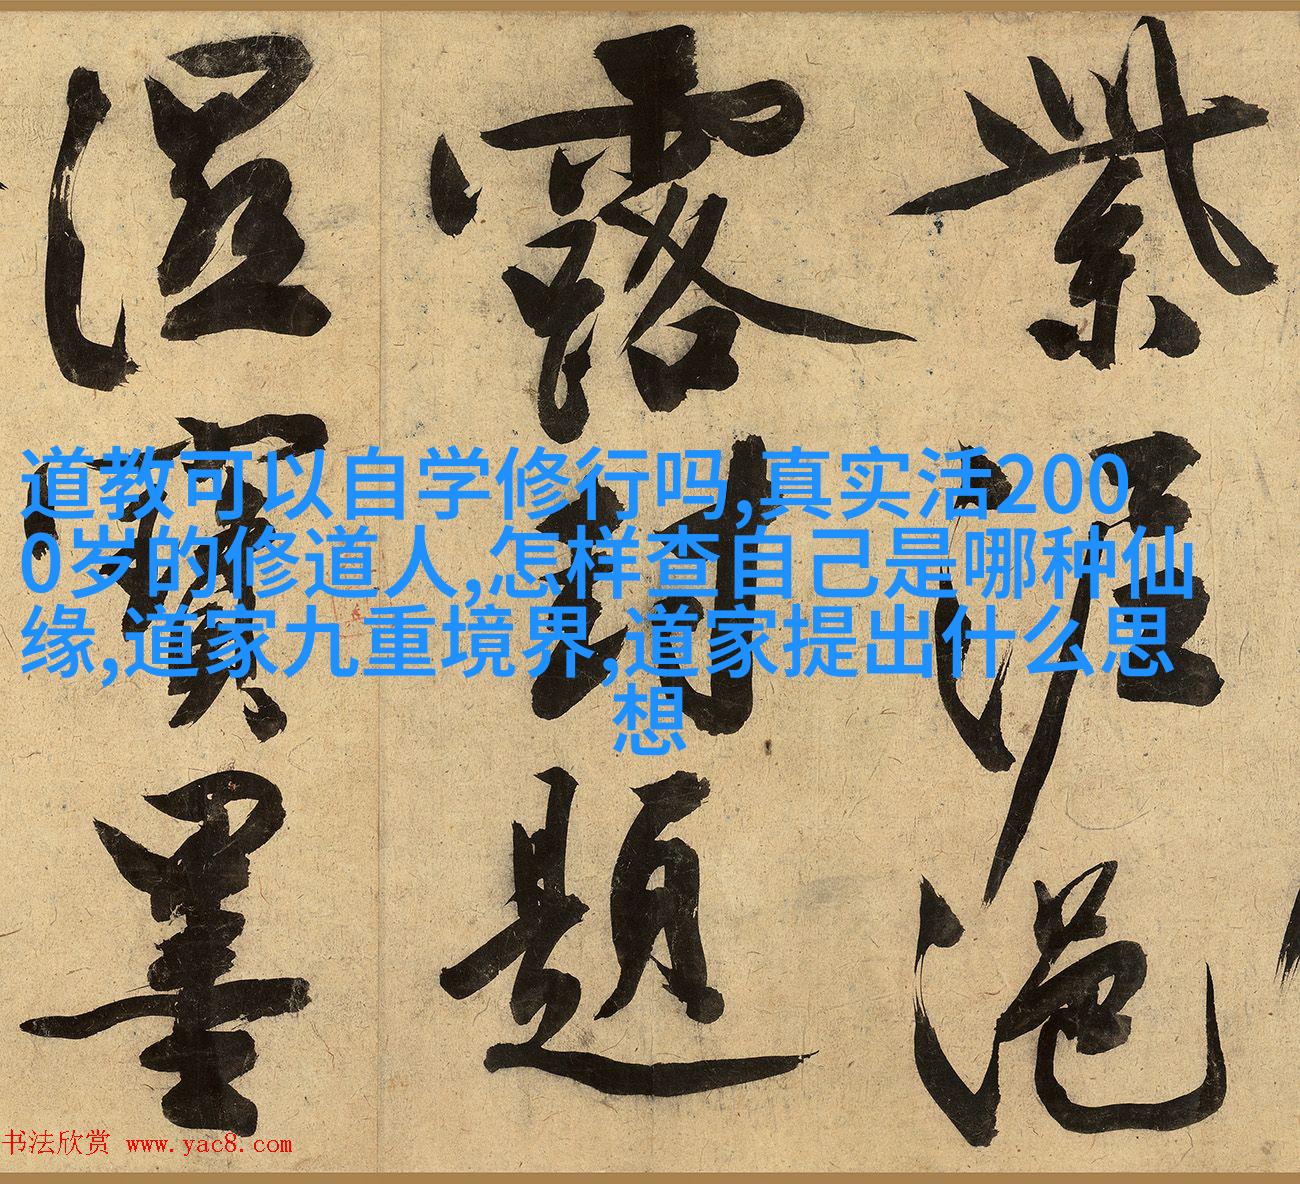 道教可以自学修行吗,真实活200
0岁的修道人,怎样查自己是哪种仙
缘,道家九重境界,道家提出什么思
想
紫泥浥
露封題
濕寶墨
书法欣赏 www.yac8.com